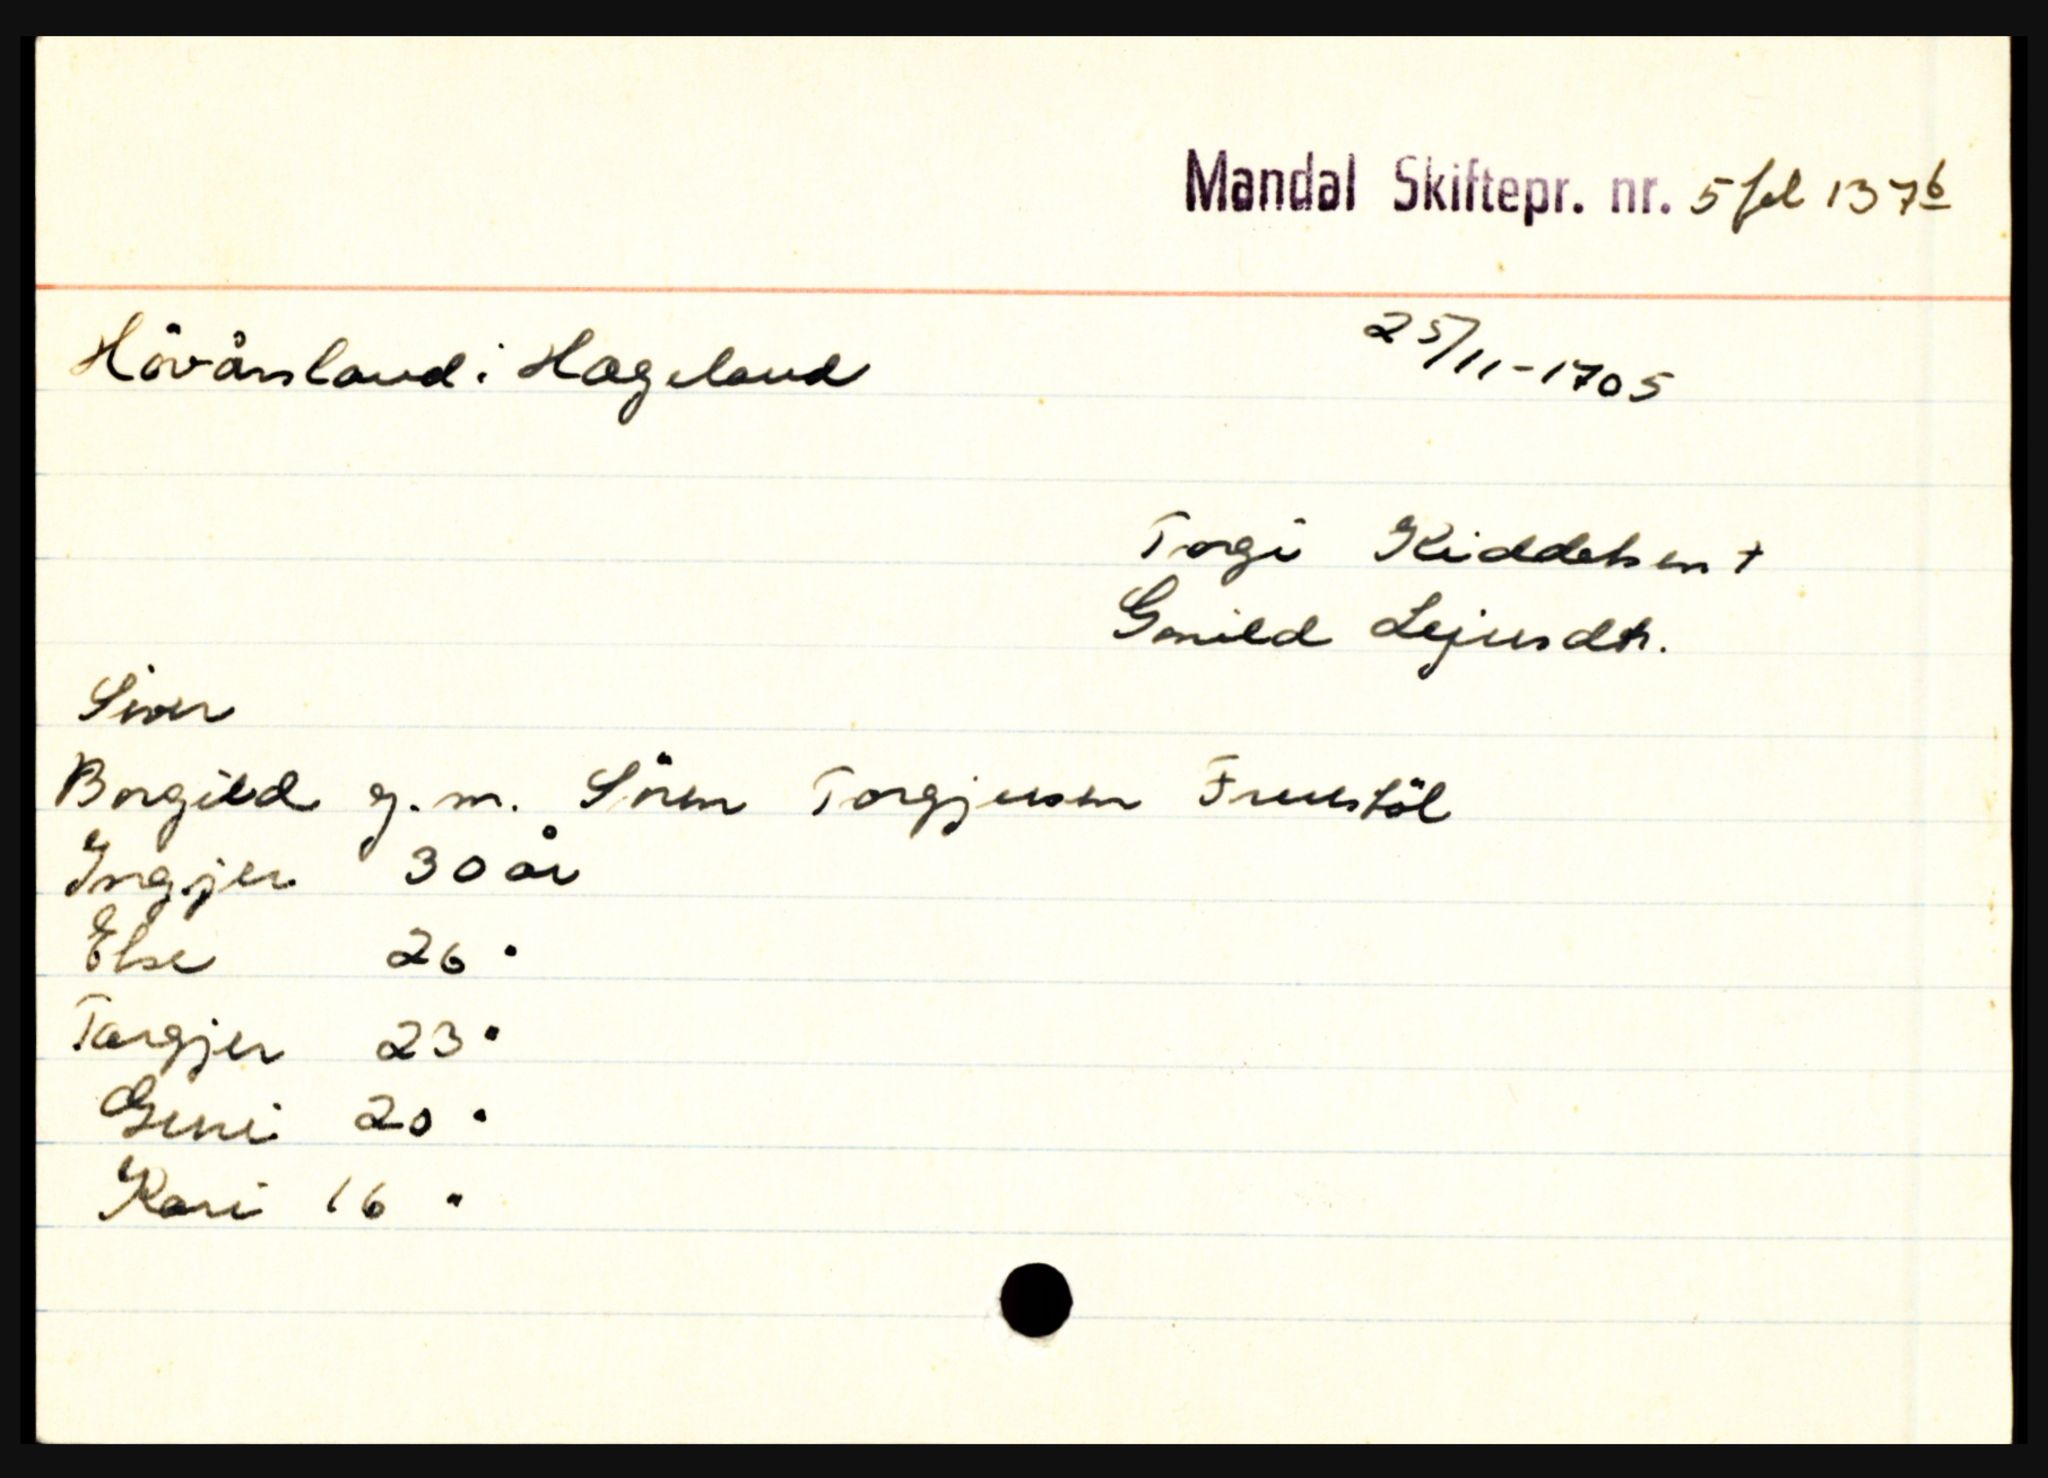 Mandal Skiftepr. nr. 5 fol 137b
Hövånsland i Hægeland 25/11-1705
Torgi Kiddelsen +
Gunild Lejusdtr.
Siver
Borgild g.m. Sören Torgjusen
Ingjer 30 år
Else 26 "
Targjer 23 "
Guni 20 "
Kari 16 "